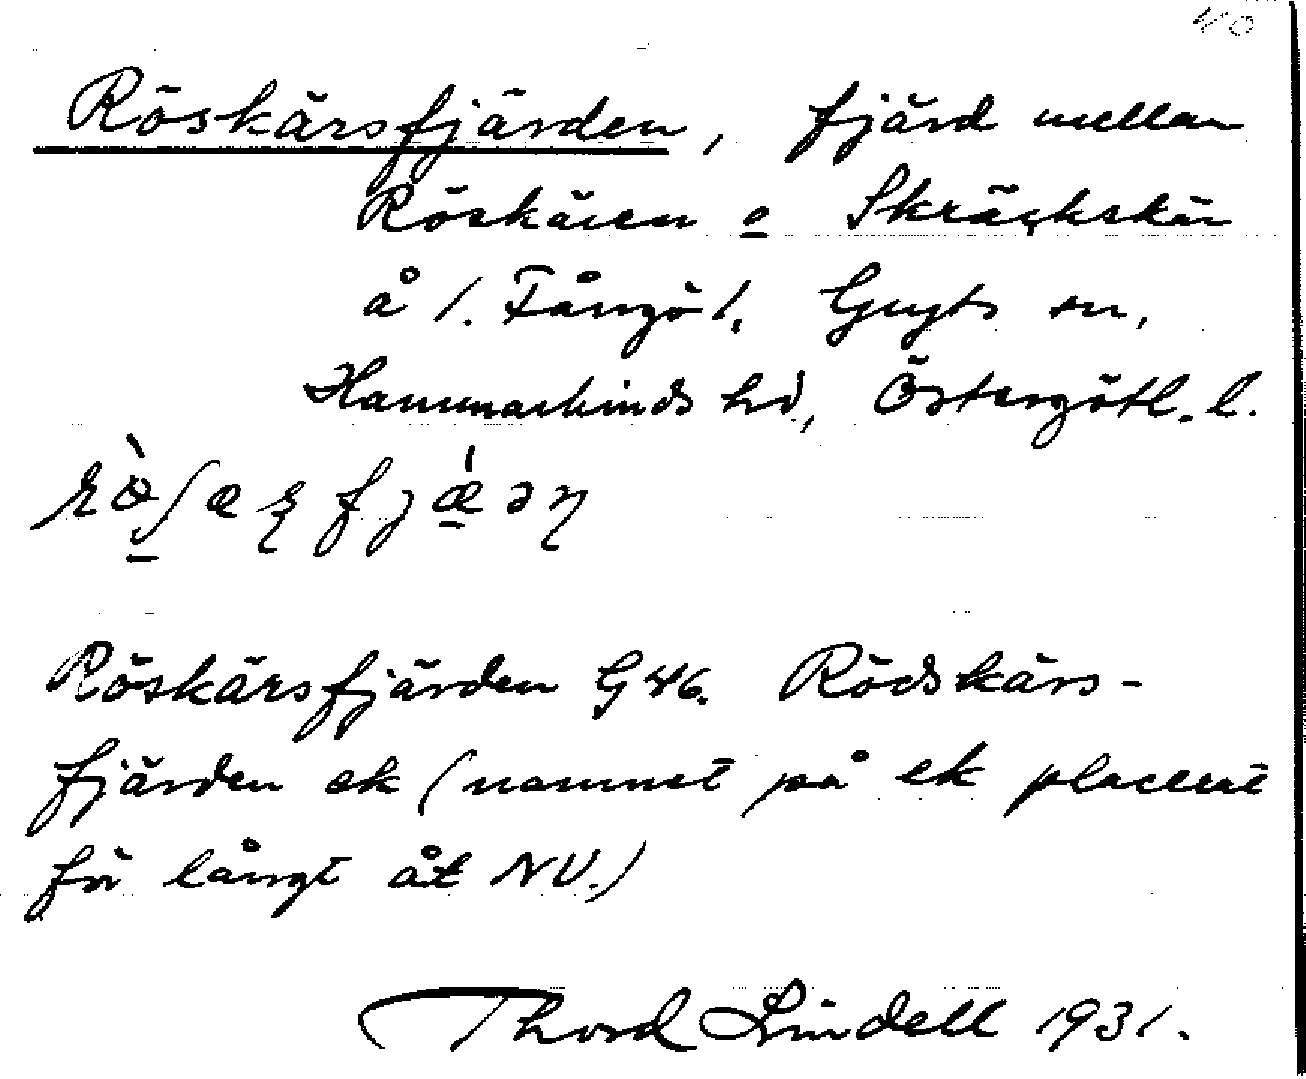 40
Röskärsfjärden, fjärd mellan
Röskären o Skräckskär
å /. Fångö /, Gryts sn,
Hammarkinds hd, Östergötl. l.
Röskärsfjärden G 46. Rödskärs-
fjärden ek (namnet på ek placerat
för långt åt NV.)
Thord Lindell 1931.